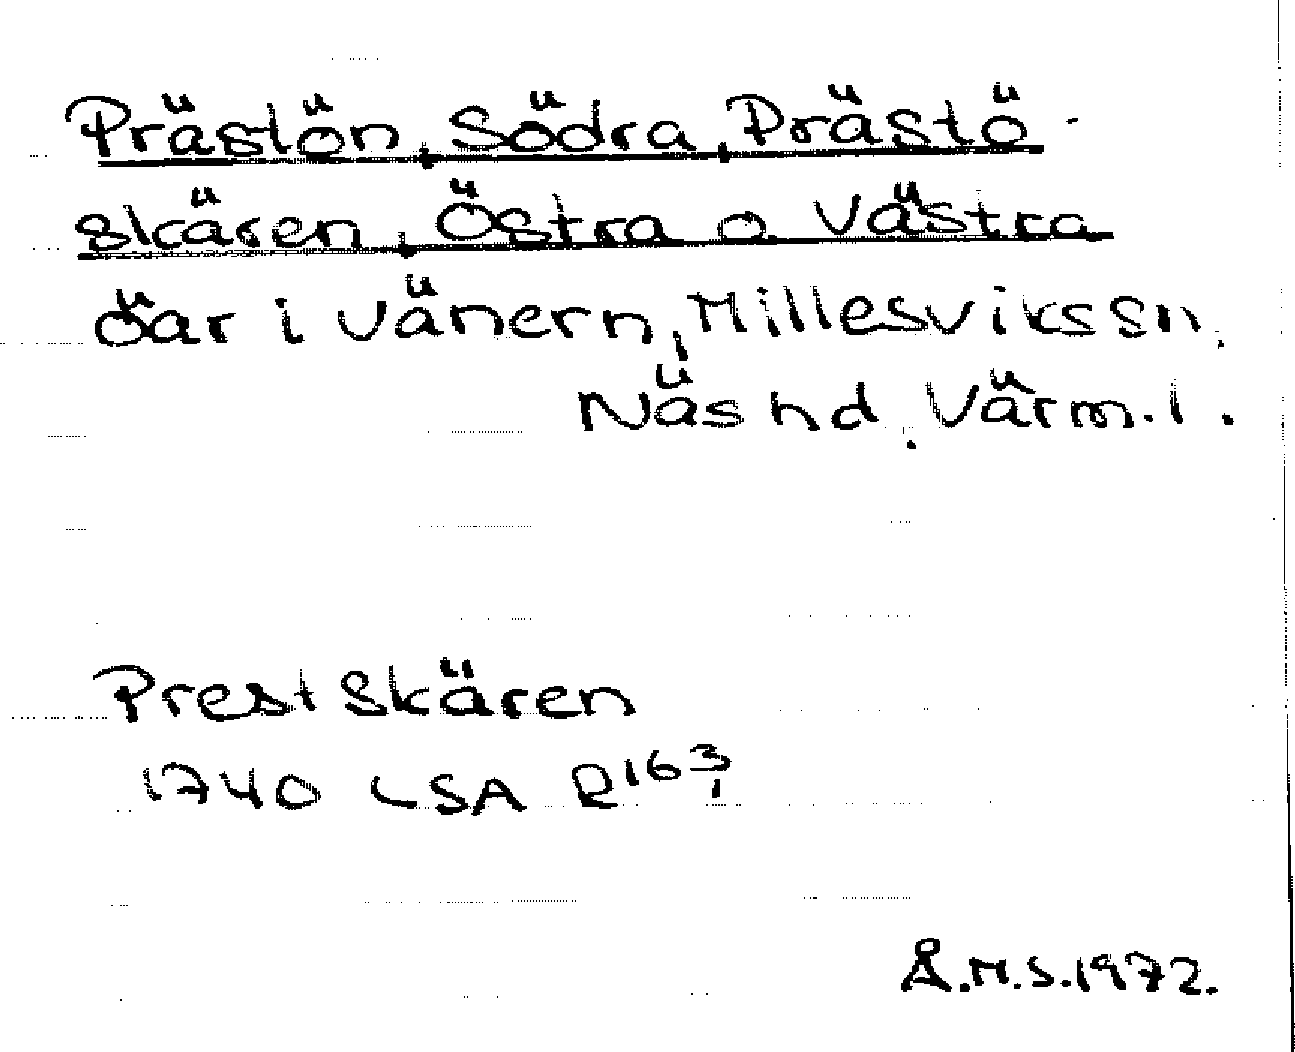 Prästön, Södra, Prästö-
skären, Östra o Västra
öar i Vänern, Millesviks sn.
Näs hd. Värml.
Prestskären
1740 LSA R163,
Å.M.S.1972.